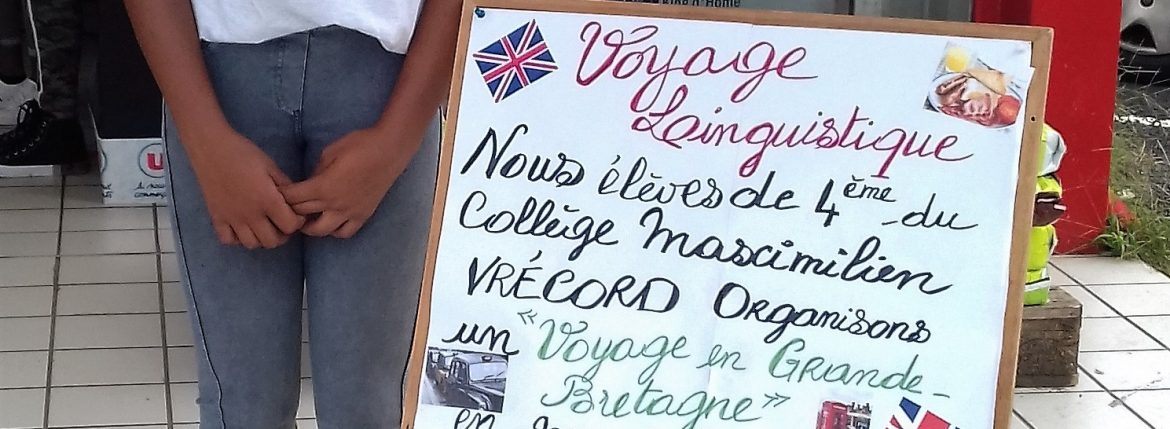 Voyage
Lainguistique
Nous élèves de 4ème du
Collège Mascimilien
VRÉCORD Organisons
un "Voyage en Grande-
Bretagne"
en
U